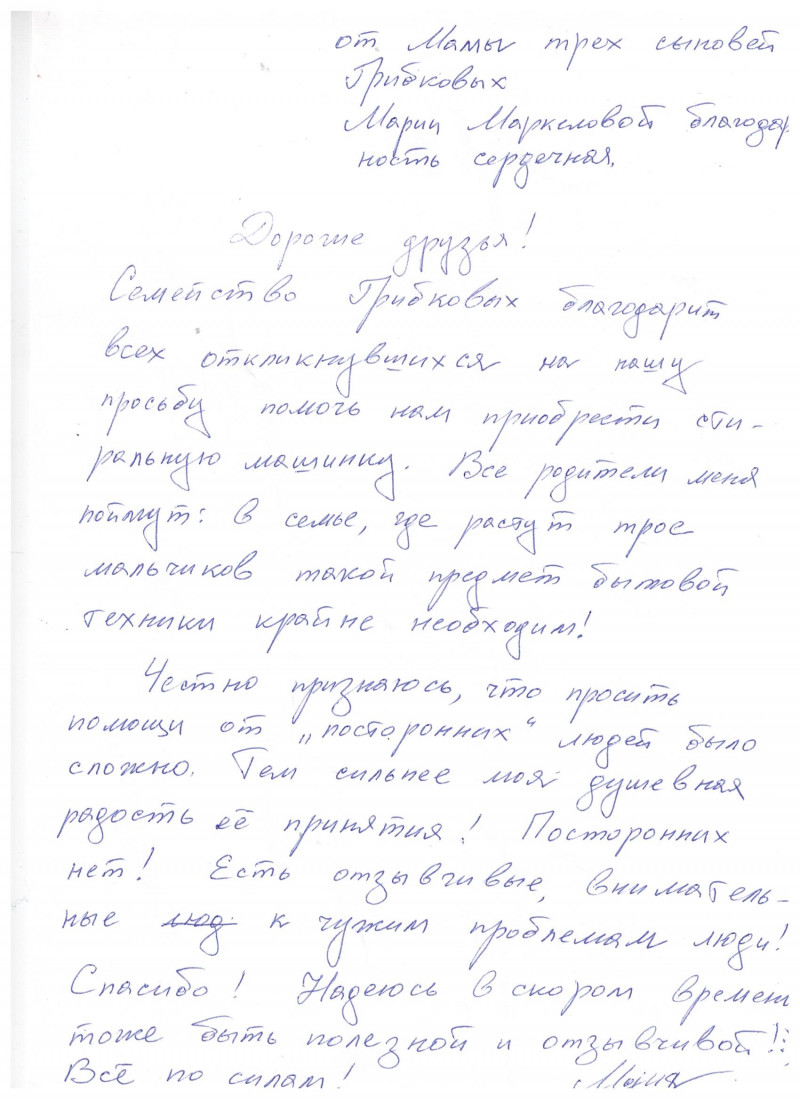 от Мамы трех сыновей
Грибковых
Марии Маркеловой благодар
ность сердечная.
Дорогие друзья!
Семейство Грибковых благодарит
всех откликнувшихся на нашу
просьбу помочь нам приобрести сти-
ральную машинку. Все родители меня
поймут: в семье, где растут трое
мальчиков такой предмет бытовой
техники крайне необходим!
Честно признаюсь, что просить
помощи от „посторонних“ людей было
сложно. Тем сильнее моя душевная
радость её принятия! Посторонних
нет! Есть отзывчивые, вниматель-
ные люд к чужим проблемам люди!
Спасибо! Надеюсь в скором времен
тоже быть полезной и отзывчивой!
Всё по силам!